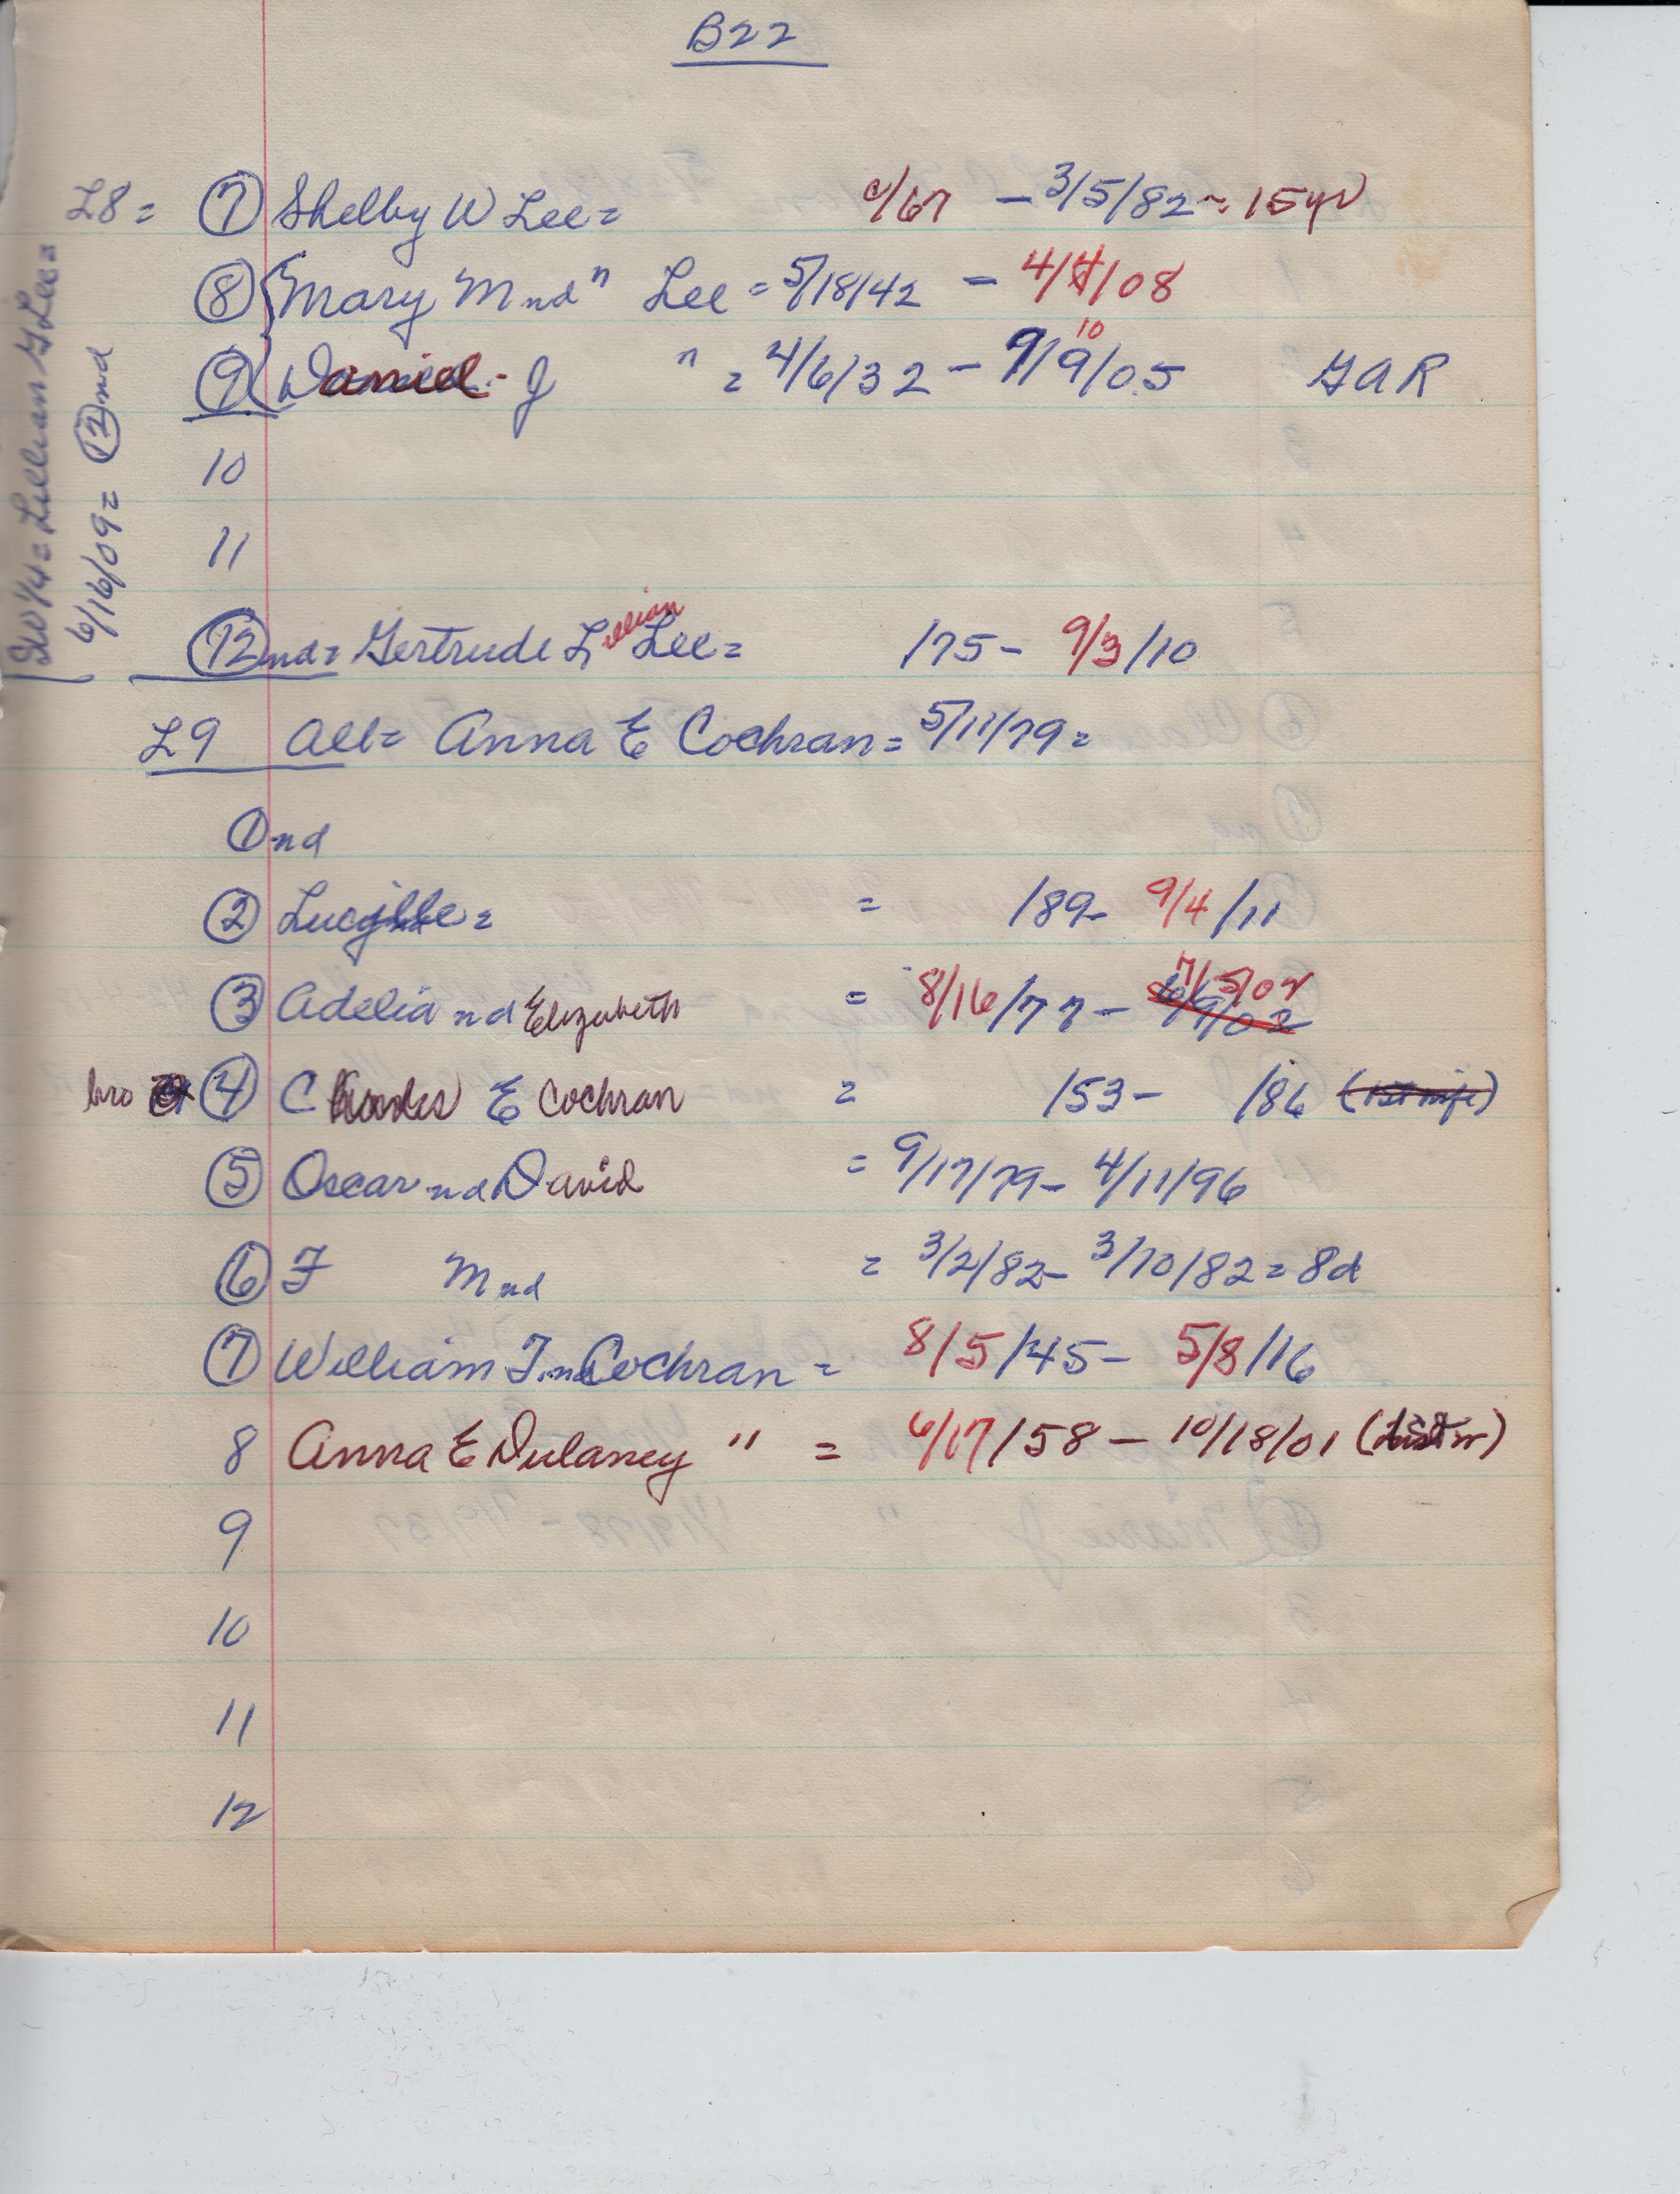 B22
L8 = (7) Shelby W Lee = c/67 - 3/5/82 ~ 15yr
(8) Mary M nd " Lee = 5/18/42 - 4/4/08
(9) Daniel J " = 4/6/32 - 9/9/05 10 GAR
10
11
(12) nd = Gertrude Lillian Lee = /75 - 9/3/10
SW 1/4 = Lillian G Lee =
6/16/09 = (12) nd
L9 All = Anna E Cochran = 5/11/79 =
(1) nd
(2) Lucille = = /89 - 9/4/11
(3) Adelia nd Elizabeth = 8/16/77 - 6/9/02 7/5/02
bro (4) C E Cochran = /53 - /86 (1st wife)
(5) Oscar nd David = 9/17/79 - 4/11/96
(6) F M nd = 3/2/82 - 3/10/82 = 8d
(7) William F nd Cochran = 8/5/45 - 5/8/16
8 Anna E Dulaney " = 6/17/58 - 10/18/01
9
10
11
12